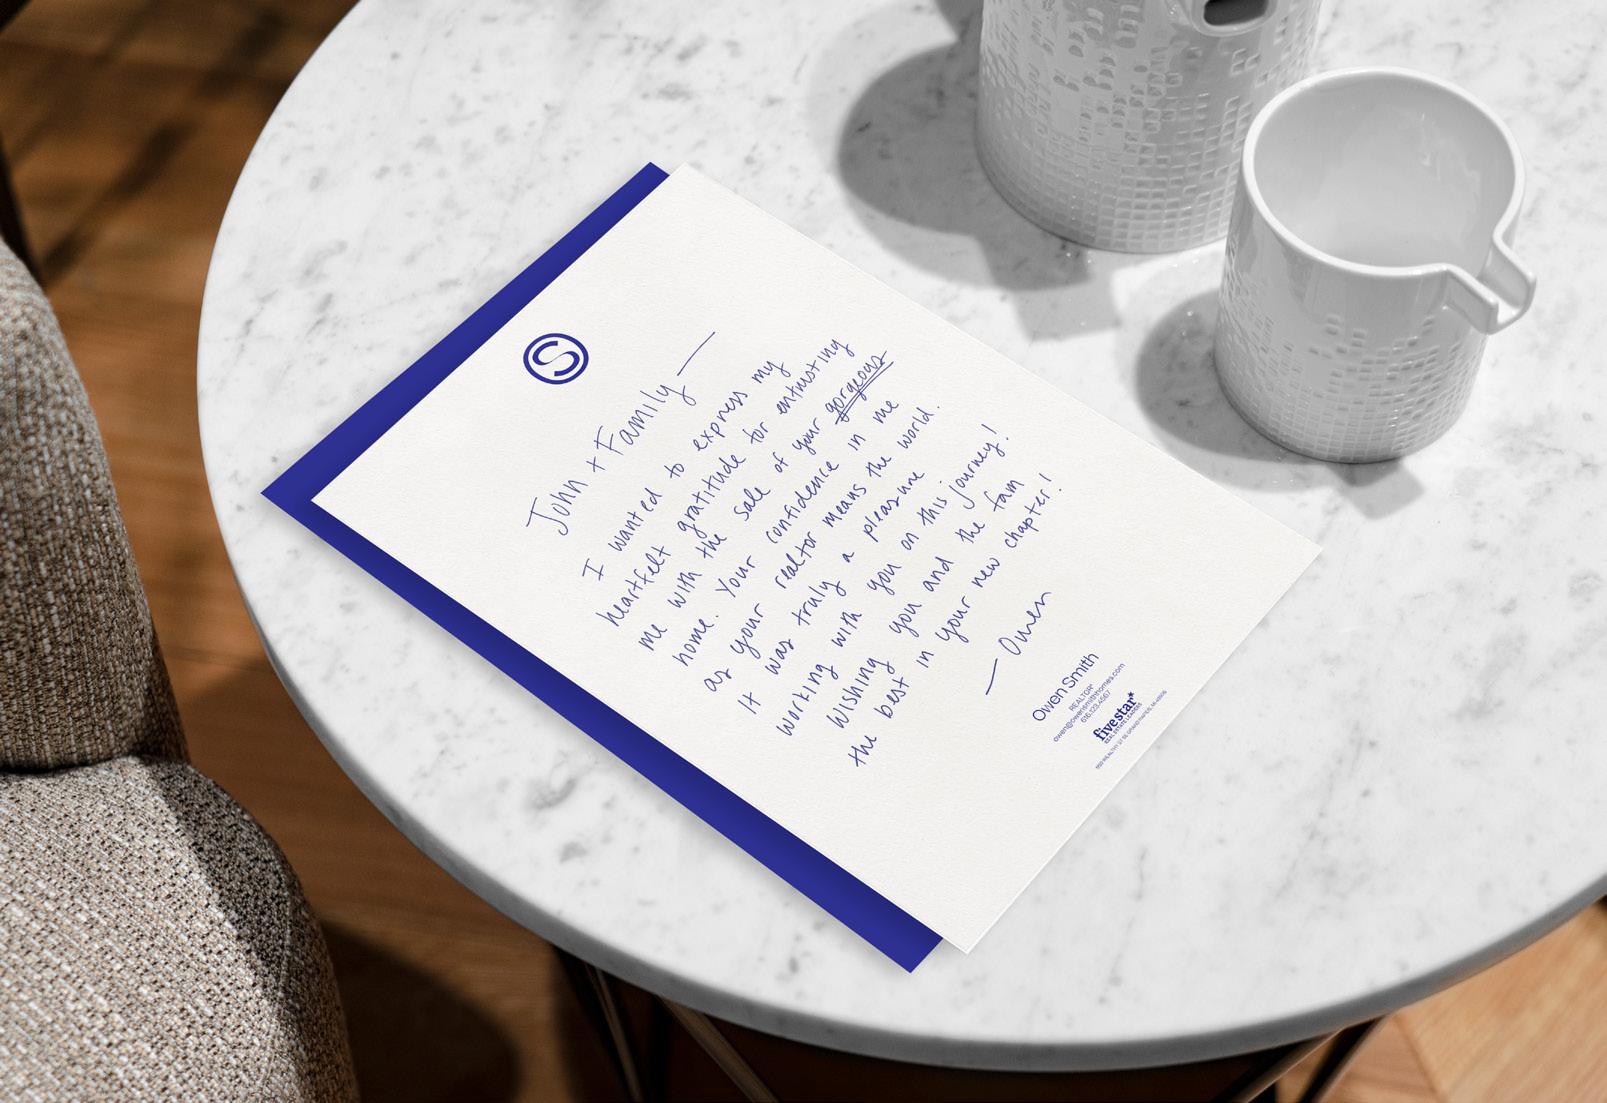 S
John + Family —
I wanted to express my
heartfelt gratitude for entrusting
me with the sale of your gorgeous
home. Your confidence in me
as your realtor means the world.
It was truly a pleasure
working with you on this journey!
Wishing you and the fam
the best in your new chapter!
— Owen
Owen Smith
REALTOR®
owen@owensmithhomes.com
616.123.4567
fivestar*
REAL ESTATE LEADERS